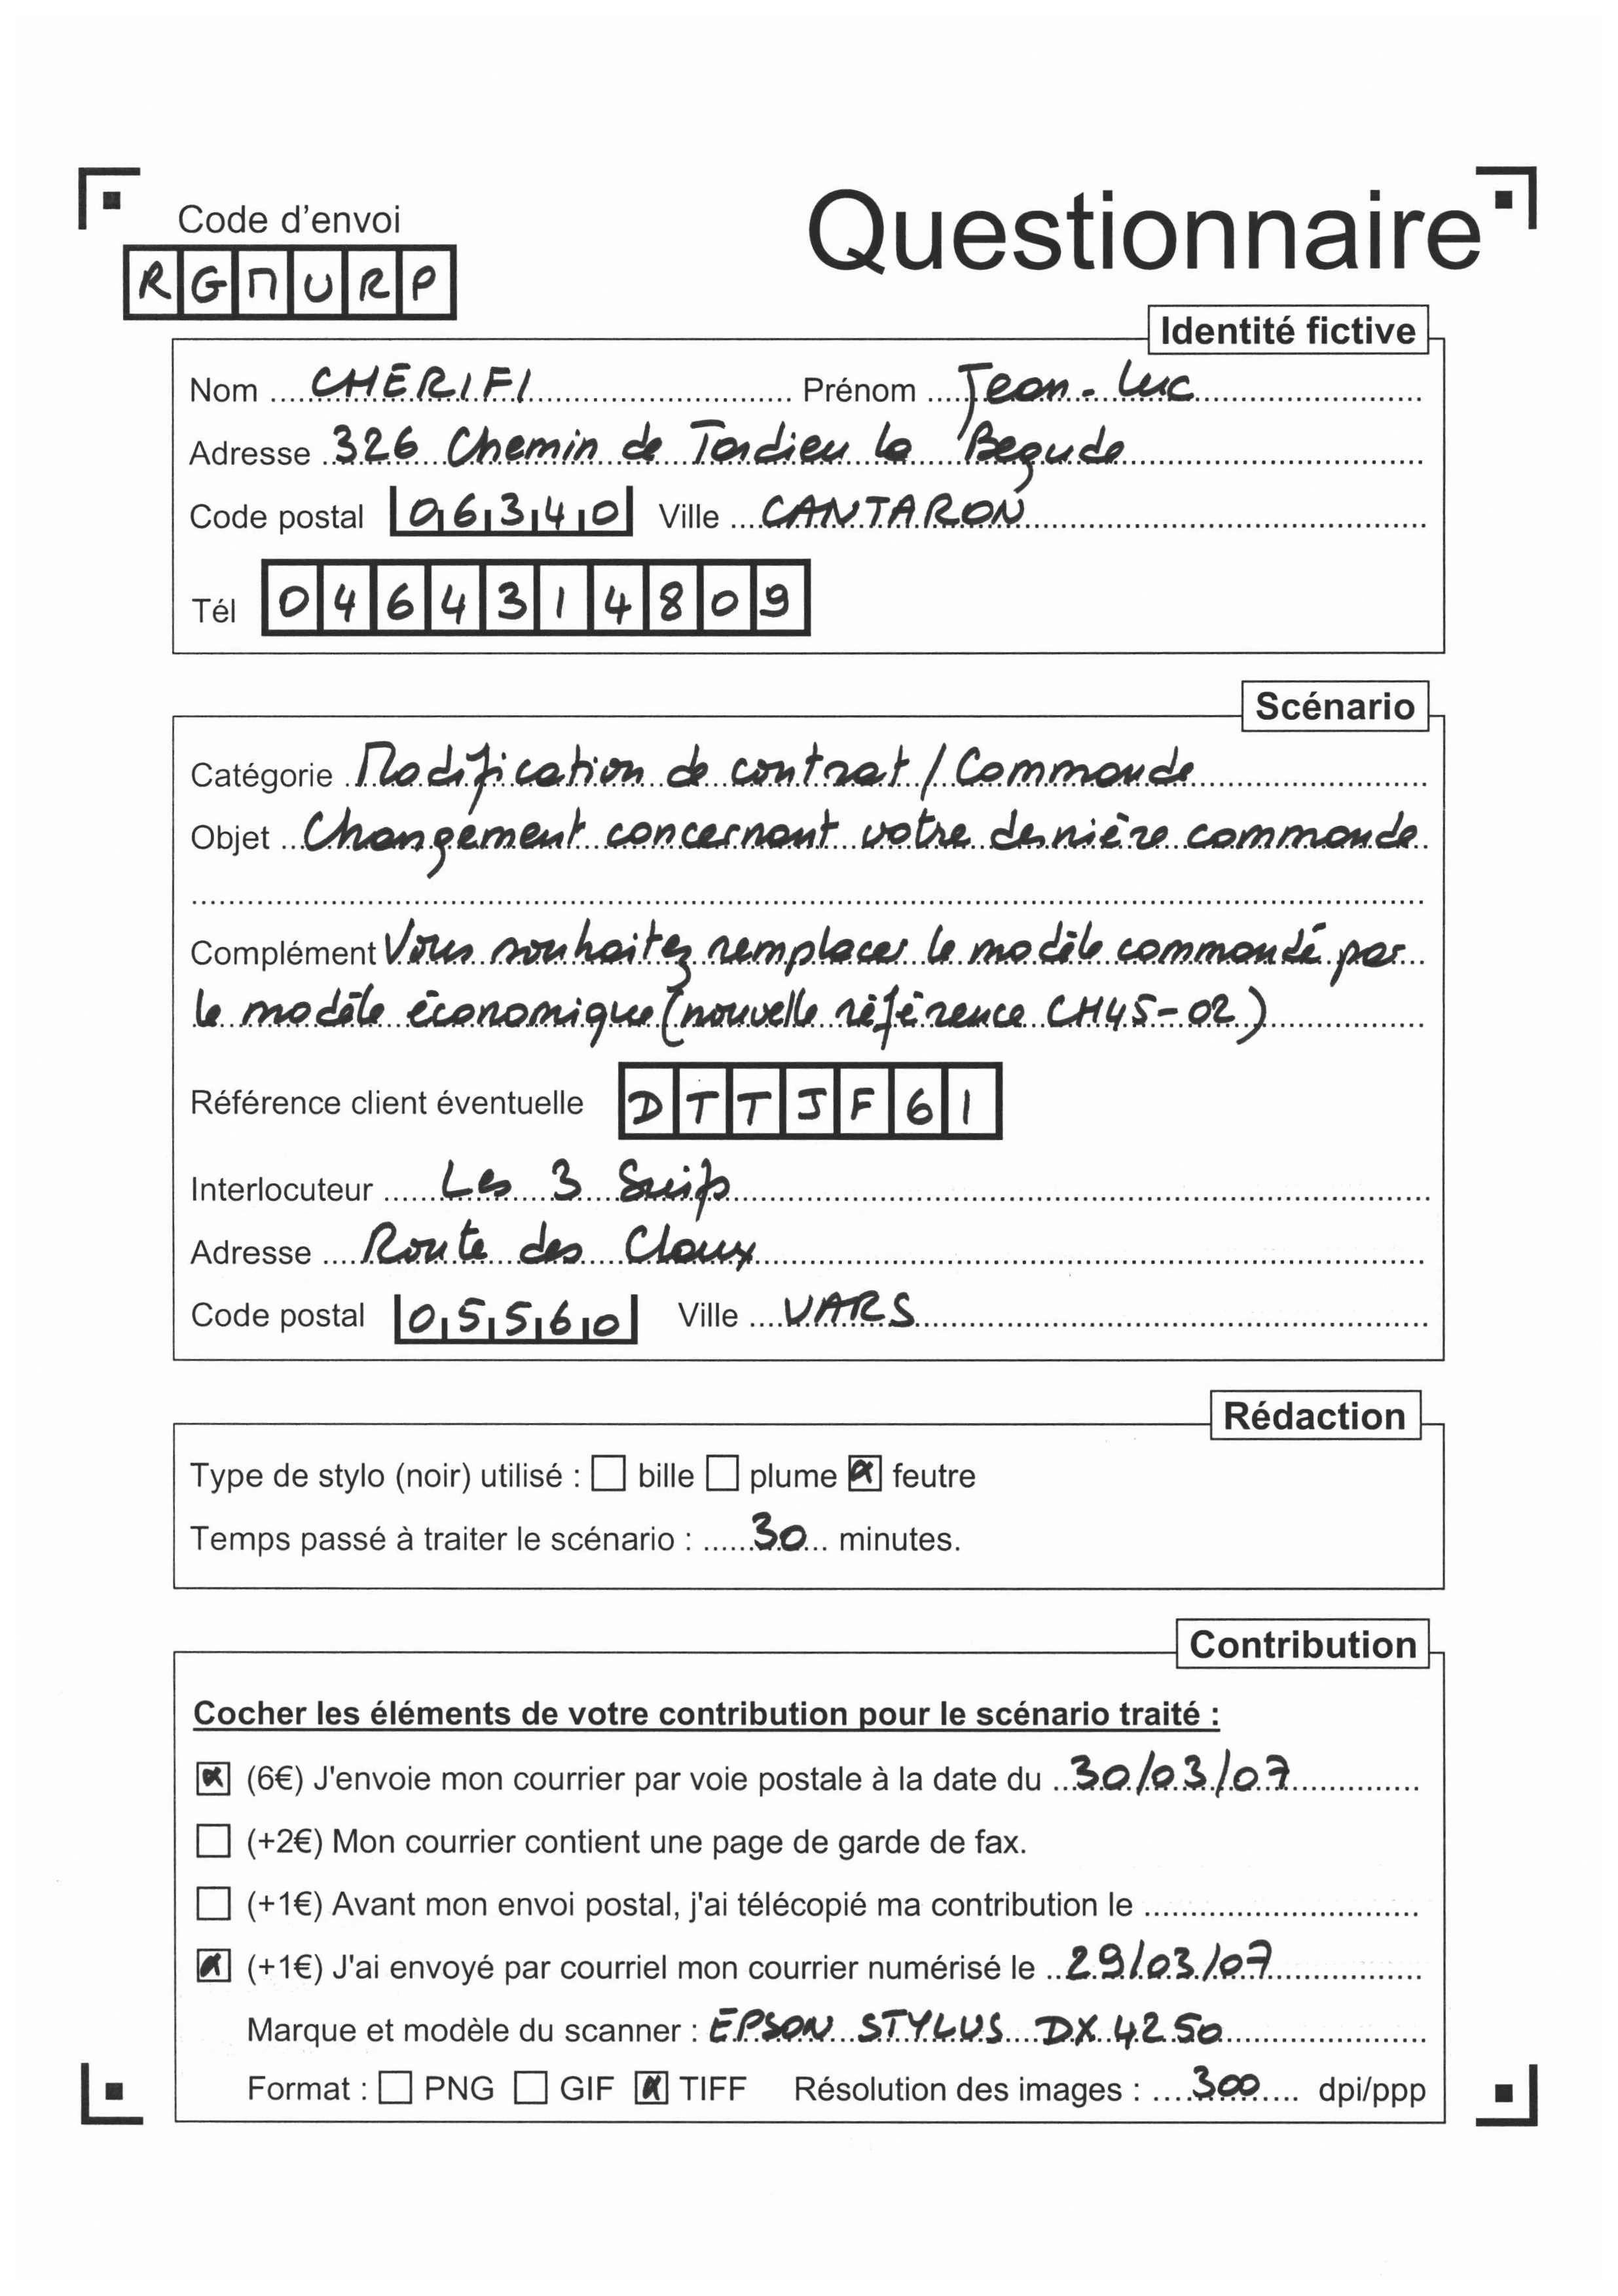 Code d'envoi
Questionnaire
RGMURP
Identité fictive
Nom CHERIFI Prénom Jean-Luc
Adresse 326 Chemin de Tardieu la Begude
Code postal 06340 Ville CANTARON
Tél 0464314809
Scénario
Catégorie Modification de contrat / Commande
Objet Changement concernant votre dernière commande
Complément Vous souhaitez remplacer le modèle commandé par
le modèle économique (nouvelle référence CH45-02)
Référence client éventuelle DTTJF61
Interlocuteur Les 3 Suisses
Adresse Route des Claux
Code postal 05560 Ville VARS
Rédaction
Type de stylo (noir) utilisé : bille plume feutre
Temps passé à traiter le scénario : 30 minutes.
Contribution
Cocher les éléments de votre contribution pour le scénario traité :
(6€) J'envoie mon courrier par voie postale à la date du 30/03/07
(+2€) Mon courrier contient une page de garde de fax.
(+1€) Avant mon envoi postal, j'ai télécopié ma contribution le
(+1€) J'ai envoyé par courriel mon courrier numérisé le 29/03/07
Marque et modèle du scanner : EPSON STYLUS DX 4250
Format : PNG GIF TIFF Résolution des images : 300 dpi/ppp